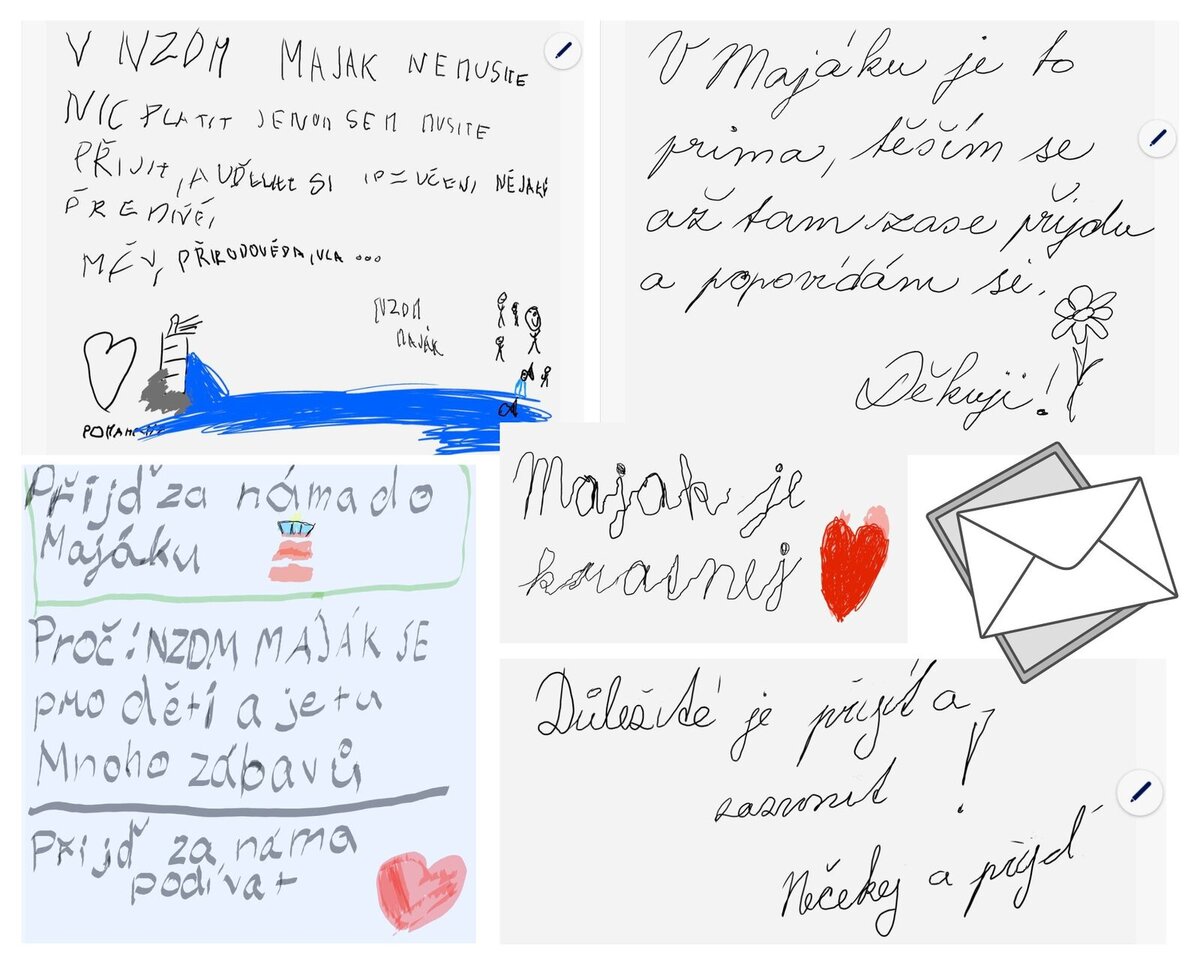 V NZDM MAJAK NEMUSITE
NIC PLATIT JENOM SEM MUSITE
PŘIJIT, A UDĚLAT SI UČENI NĚJAKÝ
MÉV, PŘIRODOVĚDA, VLA ...
NZDM
MAJÁK
V Majáku je to
prima, těším se
až tam zase přijdu
a popovídám si.
Děkuji!
Přijď za náma do
Majáku
Proč: NZDM MAJÁK JE
pro děti a je tu
Mnoho zábavů
Přijď za náma
podívat
Majak je
krasnej
Důležité je přijít a
zazvonit !
Nečekej a přijď